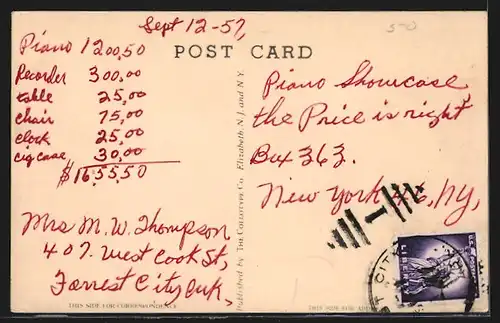 Sept 12-57,
50
POST CARD
Piano 1200,50
Recorder 300,00
table 25,00
chair 75,00
clock 25,00
cig case 30,00
$1655,50
Mrs M. W. Thompson,
407. West Cook St,
Forrest City, ark,
THIS SIDE FOR CORRESPONDENCE
Published by THE COLLOTYPE CO., Elizabeth, N. J. and N. Y.
Piano Showcase
the Price is right
Box 363.
New York 46, Ny,
LIBERTY
THIS SIDE FOR